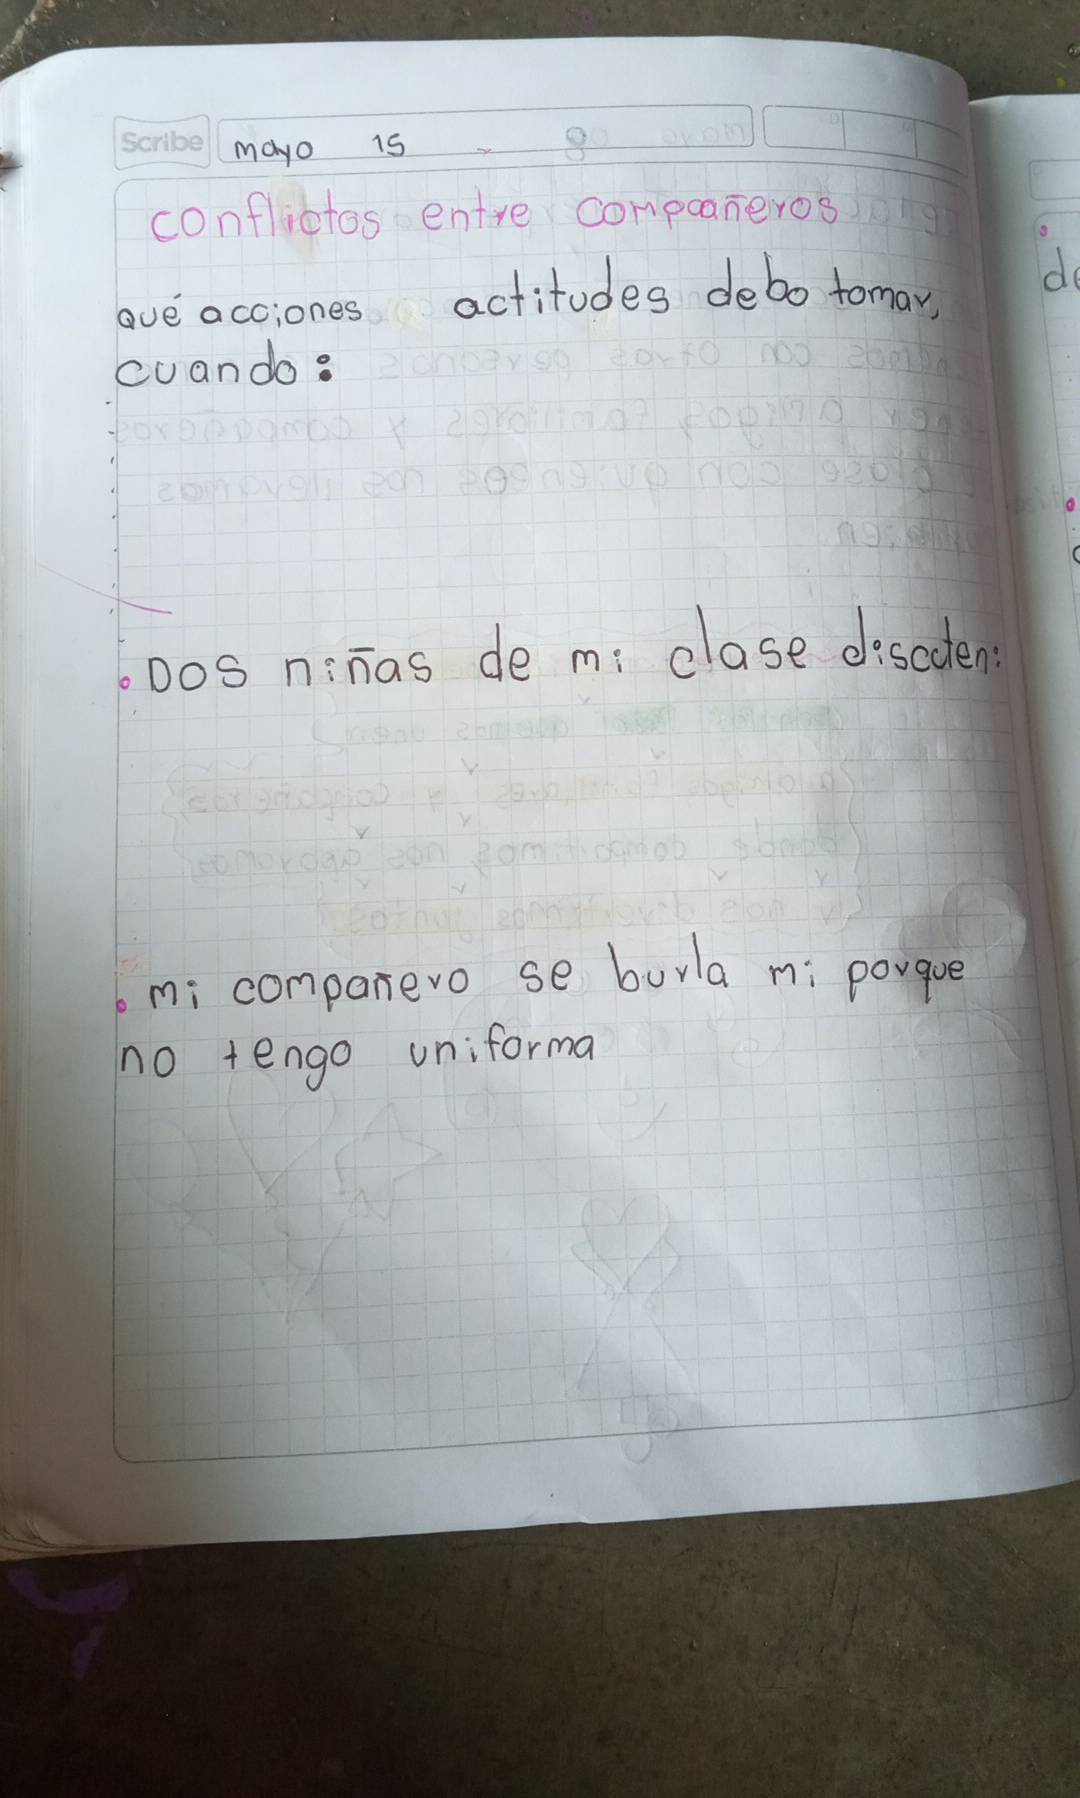 Scribe mayo 15
conflictos entre compañeros
qué acciones actitudes debo tomar,
cuando:
. Dos niñas de mi clase discuten:
. mi compañero se burla mi porque
no tengo uniforma
de